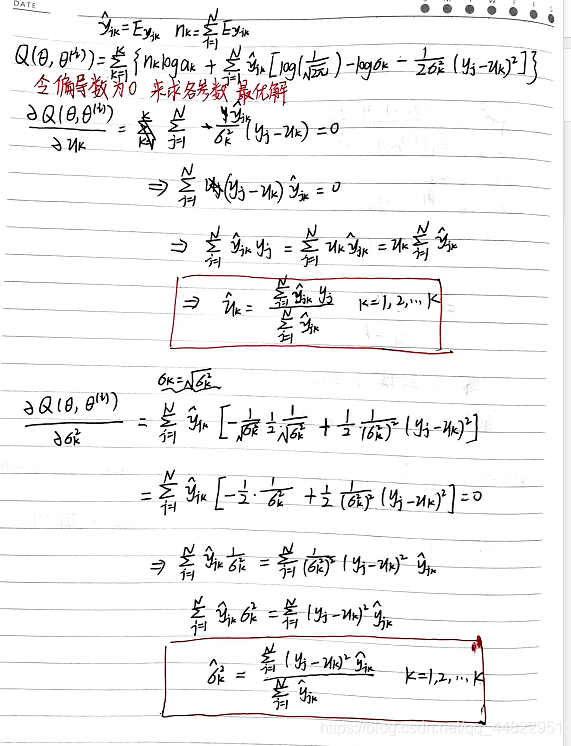 DATE
ŷjk = Eγjk nk = Σ_{j=1}^{N} Eγjk
Q(θ, θ^(t)) = Σ_{k=1}^{K} { nk log ak + Σ_{j=1}^{N} ŷjk [ log(1/√2π) - log σk - 1/(2σk²) (yj - uk)² ] }
令偏导数为0 来求各参数最优解
∂Q(θ, θ^(t)) / ∂uk = Σ_{j=1}^{N} ŷjk/σk² (yj - uk) = 0
⇒ Σ_{j=1}^{N} (yj - uk) ŷjk = 0
⇒ Σ_{j=1}^{N} ŷjk yj = Σ_{j=1}^{N} uk ŷjk = uk Σ_{j=1}^{N} ŷjk
⇒ ûk = Σ_{j=1}^{N} ŷjk yj / Σ_{j=1}^{N} ŷjk k=1,2,… K
σk = √σk²
∂Q(θ, θ^(t)) / ∂σk² = Σ_{j=1}^{N} ŷjk [ -1/√σk² · 1/2 · 1/√σk² + 1/2 · 1/(σk²)² (yj - uk)² ]
= Σ_{j=1}^{N} ŷjk [ -1/2 · 1/σk² + 1/2 · 1/(σk²)² (yj - uk)² ] = 0
⇒ Σ_{j=1}^{N} ŷjk 1/σk² = Σ_{j=1}^{N} 1/(σk²)² (yj - uk)² ŷjk
Σ_{j=1}^{N} ŷjk σk² = Σ_{j=1}^{N} (yj - uk)² ŷjk
σ̂k² = Σ_{j=1}^{N} (yj - uk)² ŷjk / Σ_{j=1}^{N} ŷjk k=1,2,…, K
https://blog.csdn.net/qq_44822951